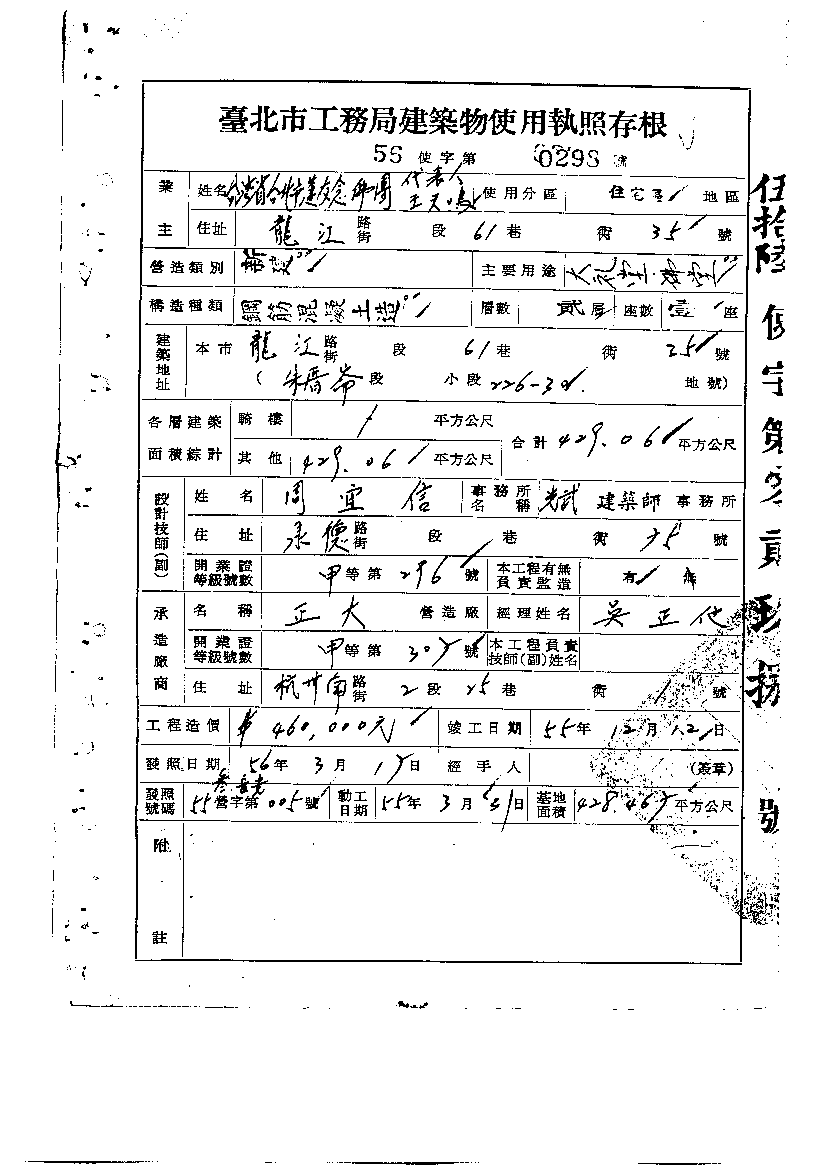 臺北市工務局建築物使用執照存根
56 使字第 0298 號
業主 姓名 代表人 使用分區 住宅區 地區
住址 龍江 路街 段 61 巷 衖 35 號
營造類別 新建 主要用途 大禮堂.佛堂
構造種類 鋼筋混凝土造 層數 貳層 座數 壹 座
建築地址 本市 龍江 路街 段 61 巷 衖 35 號
( 朱厝崙 段 小段 226-30 地號)
各層建築面積綜計 騎樓 / 平方公尺 合計 429.06 平方公尺
其他 429.06 平方公尺
設計技師(副) 姓名 周宜信 事務所名稱 光武 建築師事務所
住址 承德 路街 段 巷 衖 75 號
開業證等級號數 甲等第 296 號 本工程有無負責監造 有
承造廠商 名稱 正大 營造廠 經理姓名 吳正
開業證等級號數 甲等第 307 號 本工程負責技師(副)姓名
住址 杭州南 路街 2 段 25 巷 衖 號
工程造價 $460,000元 竣工日期 55年12月12日
發照日期 56年3月17日 經手人 (簽章)
發照號碼 55營字第 005 號 動工日期 55年3月21日 基地面積 428.467 平方公尺
附註
伍拾陸使字第零貳玖捌號